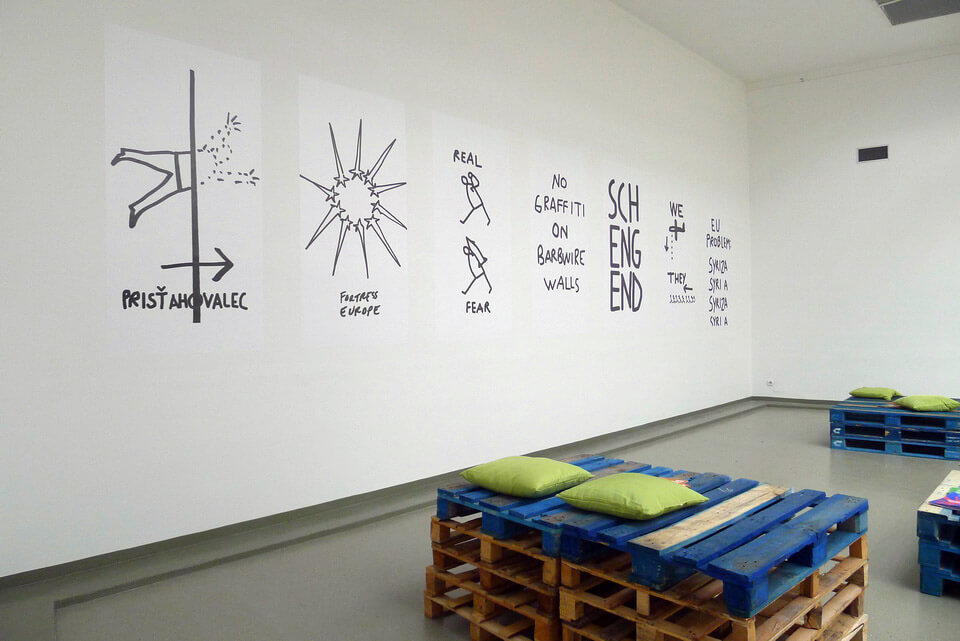 PRISŤAHOVALEC
FORTRESS
EUROPE
REAL
FEAR
NO
GRAFFITI
ON
BARBWIRE
WALLS
SCH
ENG
END
WE
THEY
EU
PROBLEMS
SYRIZA
SYRIA
SYRIZA
SYRIA